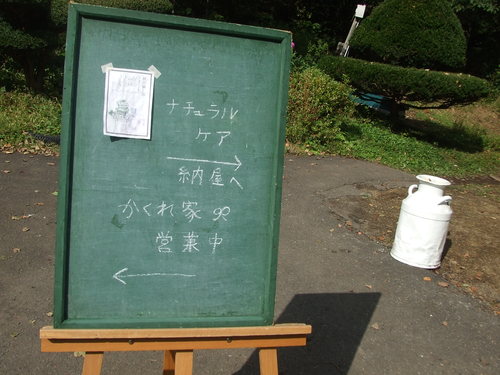 ナチュラル
ケア
→
納屋へ
かくれ家
営業中
←